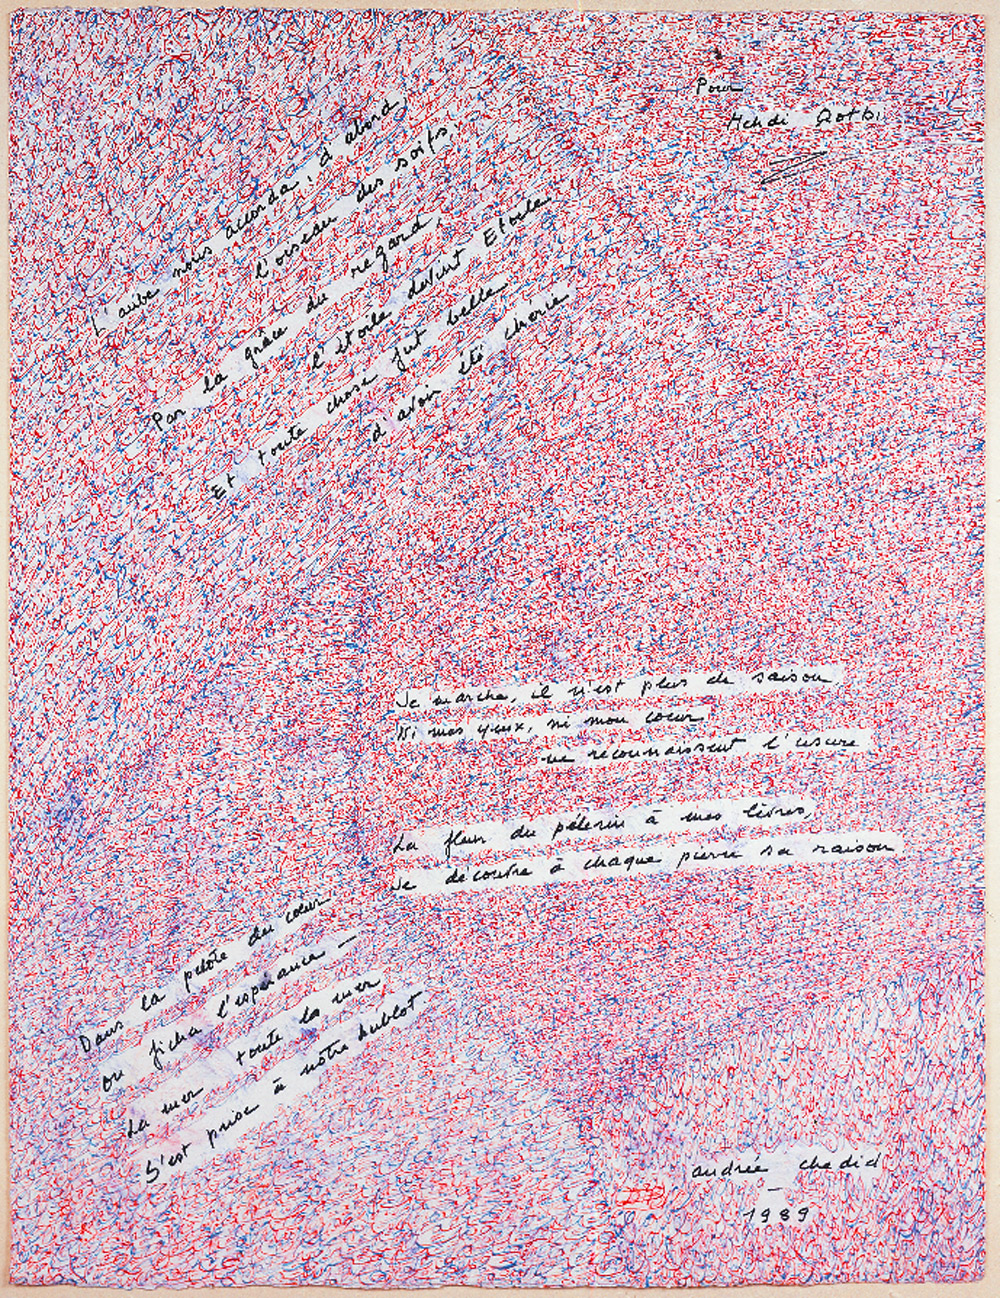 Pour
Mehdi Qotbi
L'aube nous accorda, d'abord
l'oiseau des soifs.
Par la grâce du regard,
l'étoile devint Etoile
Et toute chose fut belle
d'avoir été chérie
Je marche, il n'est plus de saison
Ni mes yeux, ni mon coeur
ne reconnaissent l'usure
La fleur du pélerin à mes lèvres,
Je décoûtre à chaque pierre sa raison
Dans la pelote du coeur
on ficha l'espérance —
La mer toute la mer
S'est prise à notre hublot
andrée chedid
1989